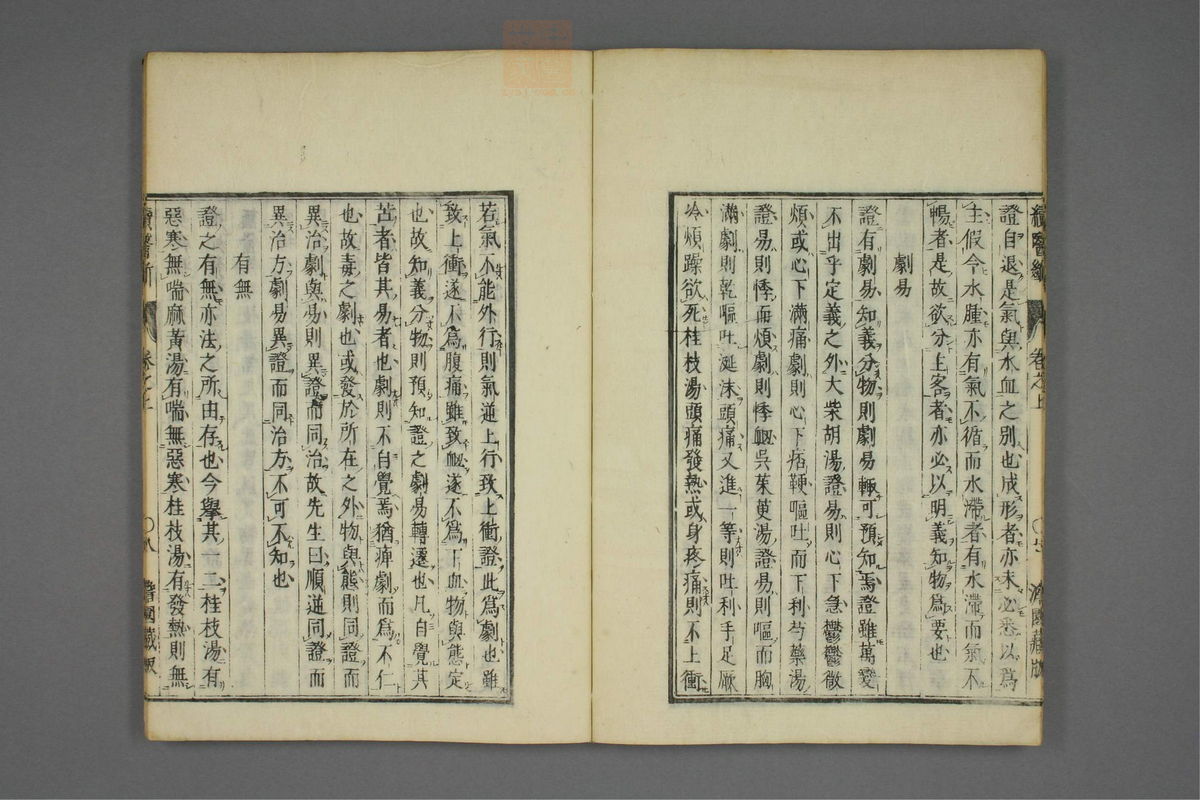 續醫斷 卷之上 〇七 濟國藏版
證自退是氣與水血之別也成形者亦未必悉以爲
主假令水腫亦有氣不循而水滯者有水滯而氣不
暢者是故欲分主客者亦必以明義知物爲要也
劇易
證有劇易知義分物則劇易輙可預知焉證雖萬變
不出乎定義之外大柴胡湯證易則心下急鬱鬱微
煩或心下滿痛劇則心下痞鞕嘔吐而下利芍藥湯
證易則悸而煩劇則悸衂吳茱萸湯證易則嘔而胸
滿劇則乾嘔吐涎沫頭痛又進一等則吐利手足厥
冷煩躁欲死桂枝湯頭痛發熱或身疼痛則不上衝
若氣不能外行則氣逆上行致上衝證此爲劇也雖
致上衝遂不爲腹痛雖致衂遂不爲下血物與態定
也故知義分物則預知證之劇易轉遷也凡自覺其
苦者皆其易者也劇則不自覺焉猶痺劇而爲不仁
也故毒之劇也或發於所在之外物與態則同證而
異治劇與易則異證而同治故先生曰順逆同證而
異治方劇易異證而同治方不可不知也
有無
證之有無亦法之所由存也今擧其一二桂枝湯有
惡寒無喘麻黃湯有喘無惡寒桂枝湯有發熱則無
續醫斷 卷之上 〇八 濟國藏版